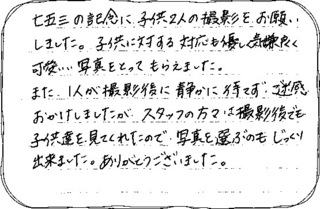 七五三の記念に、子供2人の撮影をお願い
しました。子供に対する対応も優しく機嫌良く
可愛い写真をとってもらえました。
また、1人が撮影後に静かに待てず、ご迷惑
おかけしましたが、スタッフの方々は撮影後でも
子供達を見てくれたので、写真を選ぶのもじっくり
出来ました。ありがとうございました。